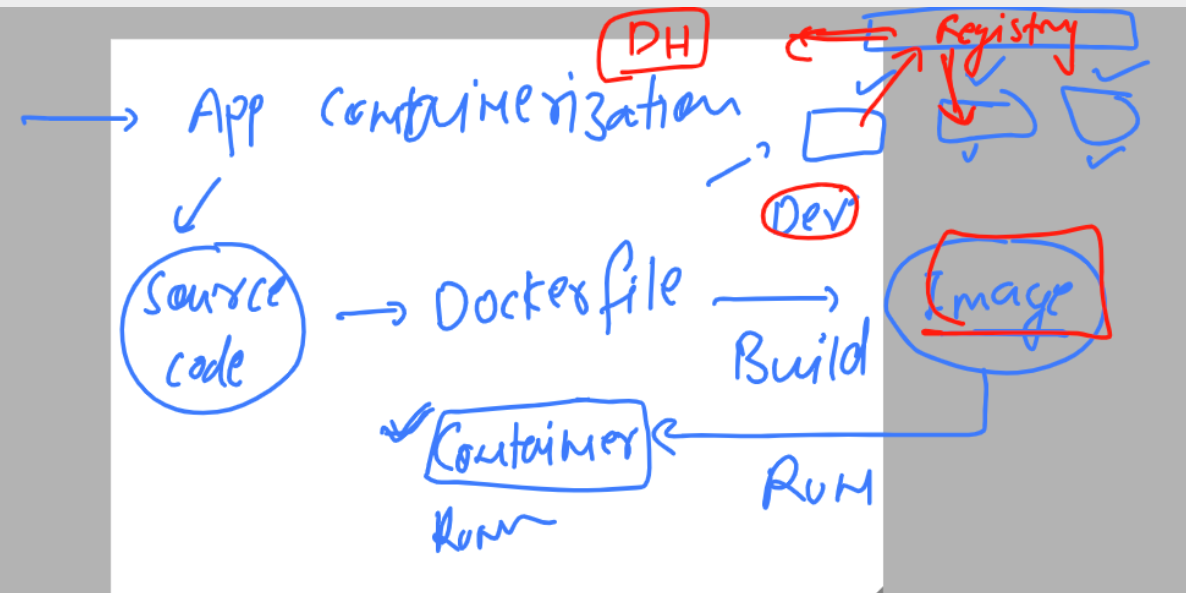 DH
Registry
App Containerization
Dev
Source
code
Dockerfile
Image
Build
Container
Run
Run